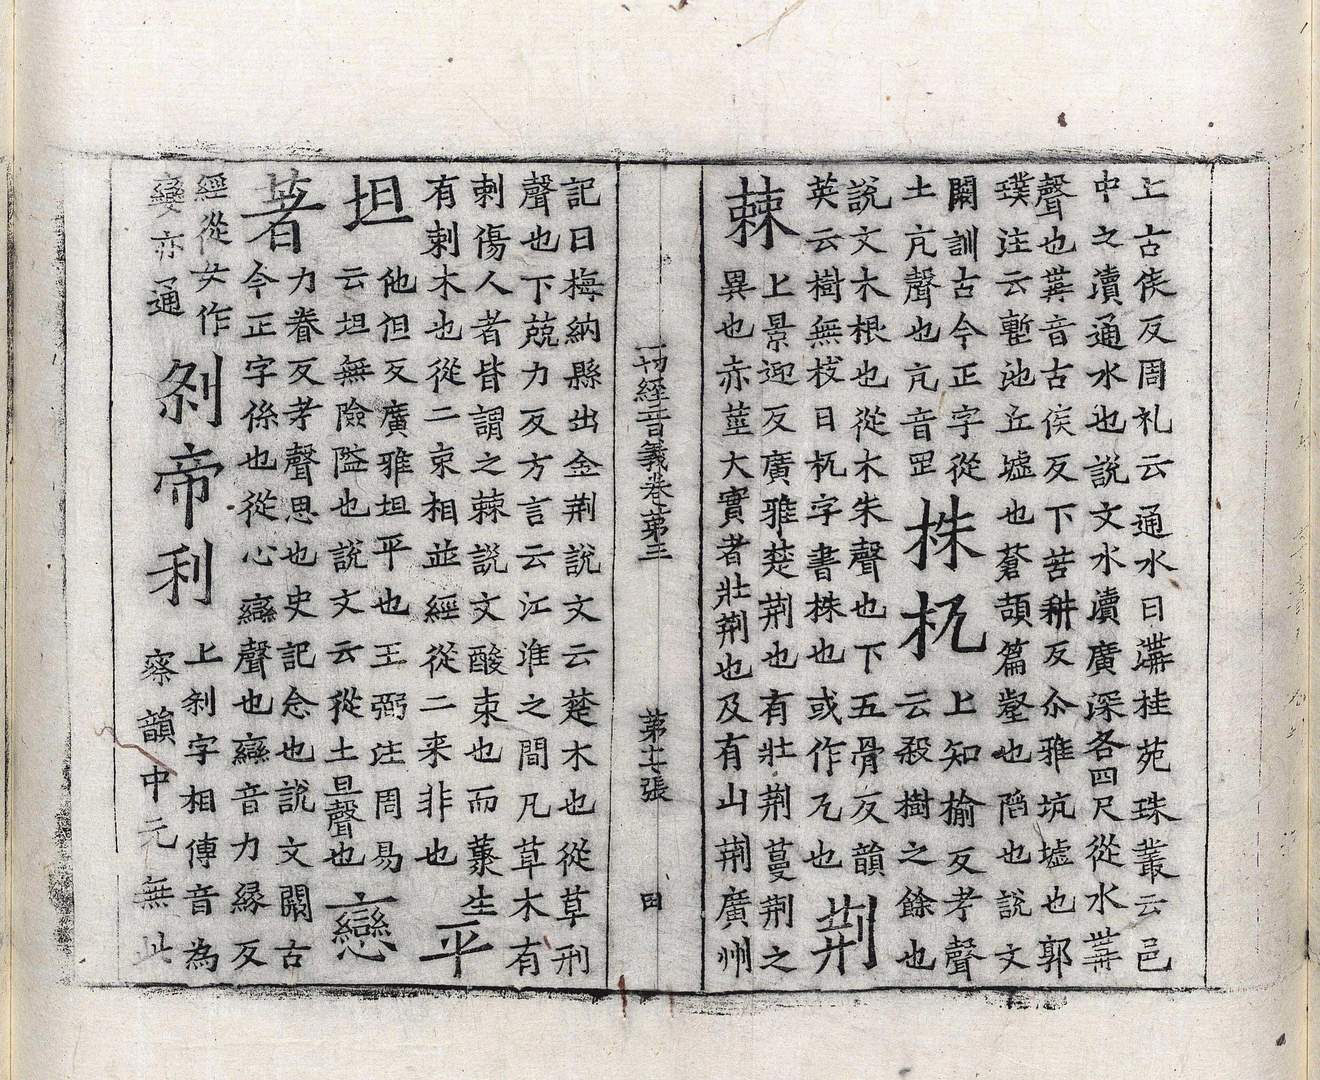 上古侯反周礼云通水曰溝桂苑珠叢云邑
中之瀆通水也說文水瀆廣深各四尺從水冓
聲也冓音古侯反下苦耕反尒雅坑墟也郭
璞注云塹池丘墟也蒼頡篇壑也陷也說文
闕訓古今正字從
土亢聲也亢音罡
株杌
上知榆反考聲
云殺樹之餘也
說文木根也從木朱聲也下五骨反韻
英云樹無枝曰杌字書株也或作兀也
荊棘
上景迎反廣雅楚荊也有壯荊蔓荊之
異也赤莖大實者壯荊也及有山荊廣州
一切經音義卷第三 第十七張 田
記曰梅納縣出金荊說文云楚木也從草刑
聲也下兢力反方言云江淮之間凡草木有
刺傷人者皆謂之棘說文酸束也而藂生
有刺木也從二朿相並經從二来非也
平坦
他但反廣雅坦平也王弼注周易
云坦無險隘也說文云從土旦聲也
戀著
力眷反考聲思也史記念也說文闕古
今正字係也從心䜌聲也䜌音力緣反
經從女作
孌亦通
剎帝利
上剎字相傳音為
察韻中元無此